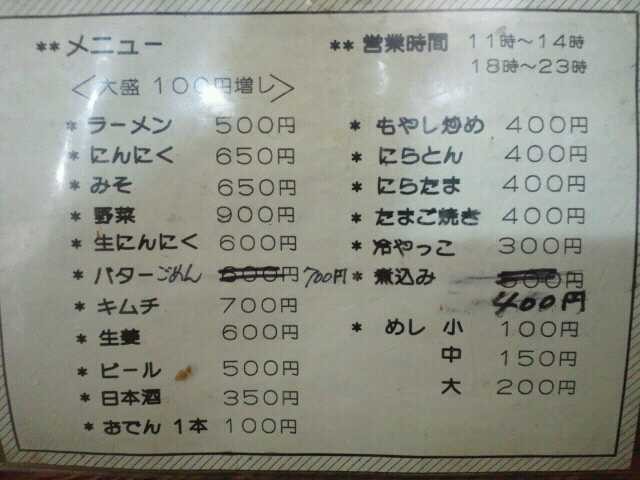 ** メニュー
<大盛 100円増し>
* ラーメン 500円
* にんにく 650円
* みそ 650円
* 野菜 900円
* 生にんにく 600円
* バターごめん 600円 700円
* キムチ 700円
* 生姜 600円
* ビール 500円
* 日本酒 350円
* おでん 1本 100円
** 営業時間 11時〜14時
18時〜23時
* もやし炒め 400円
* にらとん 400円
* にらたま 400円
* たまご焼き 400円
* 冷やっこ 300円
* 煮込み 500円
400円
* めし 小 100円
中 150円
大 200円